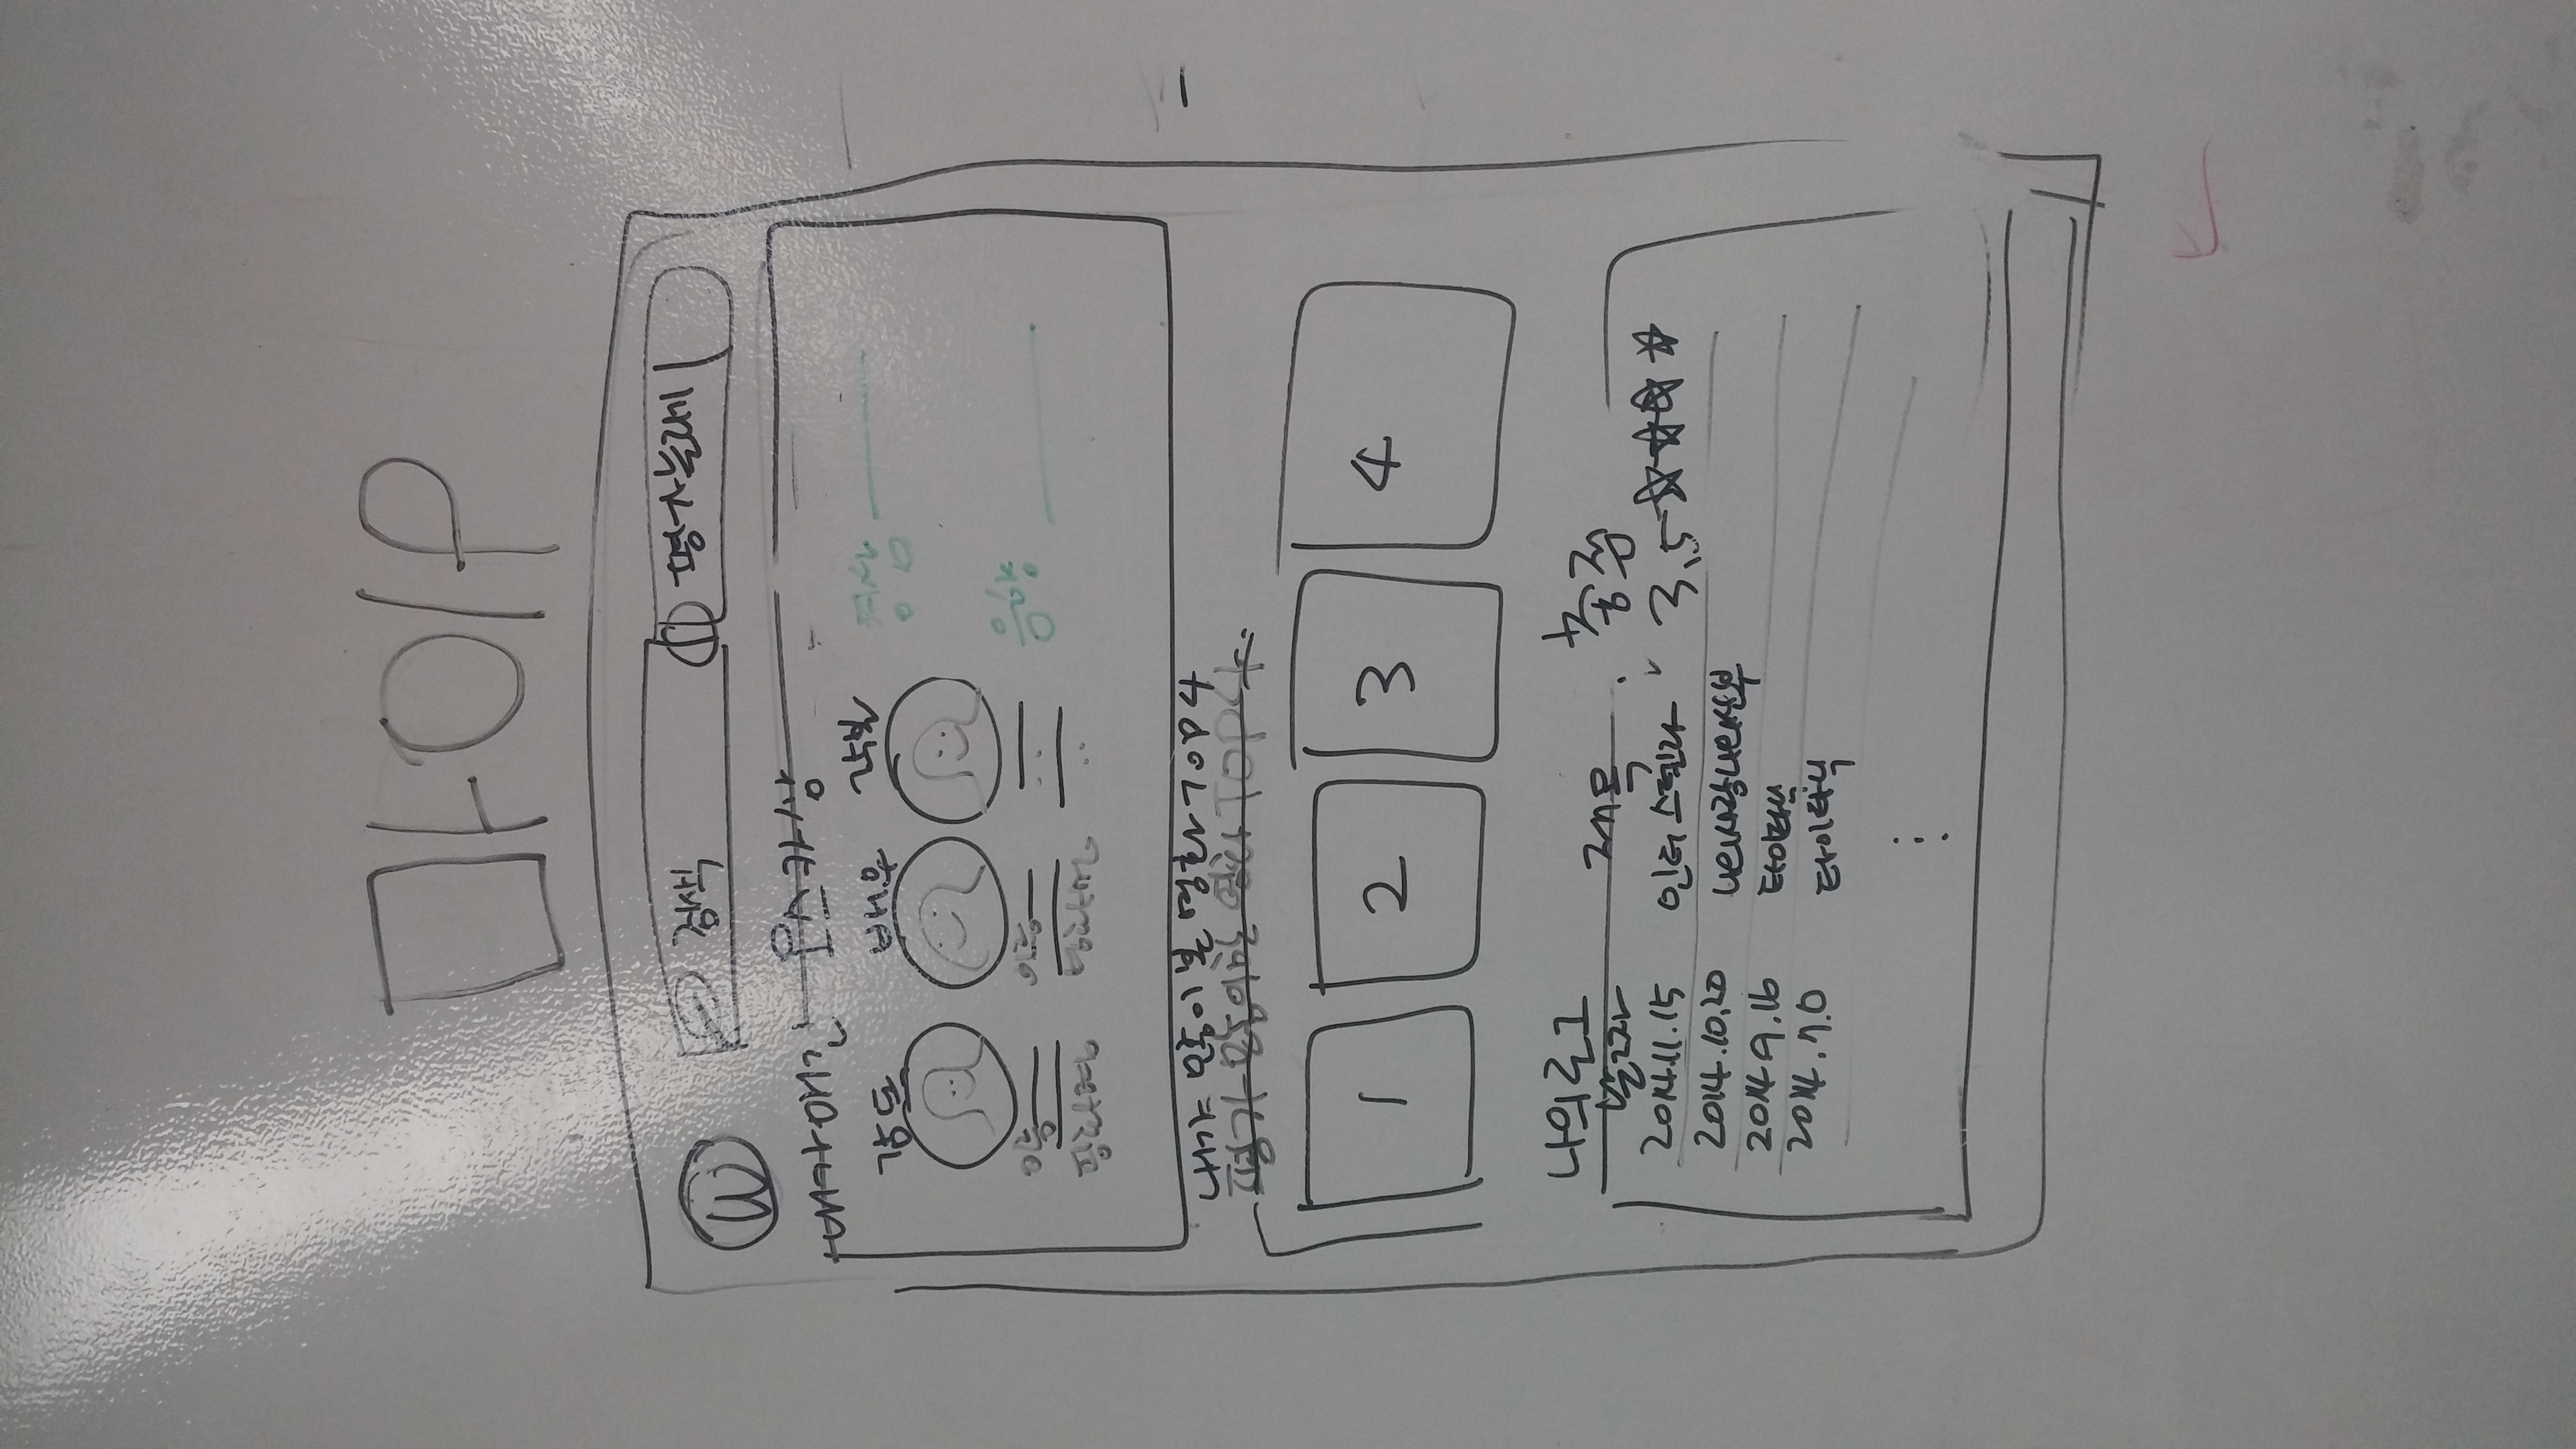 마이P
W 검색 평가늘리기
내가 매긴 오스카상
감독 배우 각본 영상
이름 이름 음향
영화명 영화명
내가 많이 본 영화 TOP 4
평가 많이한 영화 TOP 4.
1 2 3 4
나의 로그
날짜 제목 총점
2014.11.15 인터스텔라 3.5 ☆☆☆☆
2014.10.20 나의사랑나의신부
2014.9.16 타이타닉
2014.7.0 타이타닉